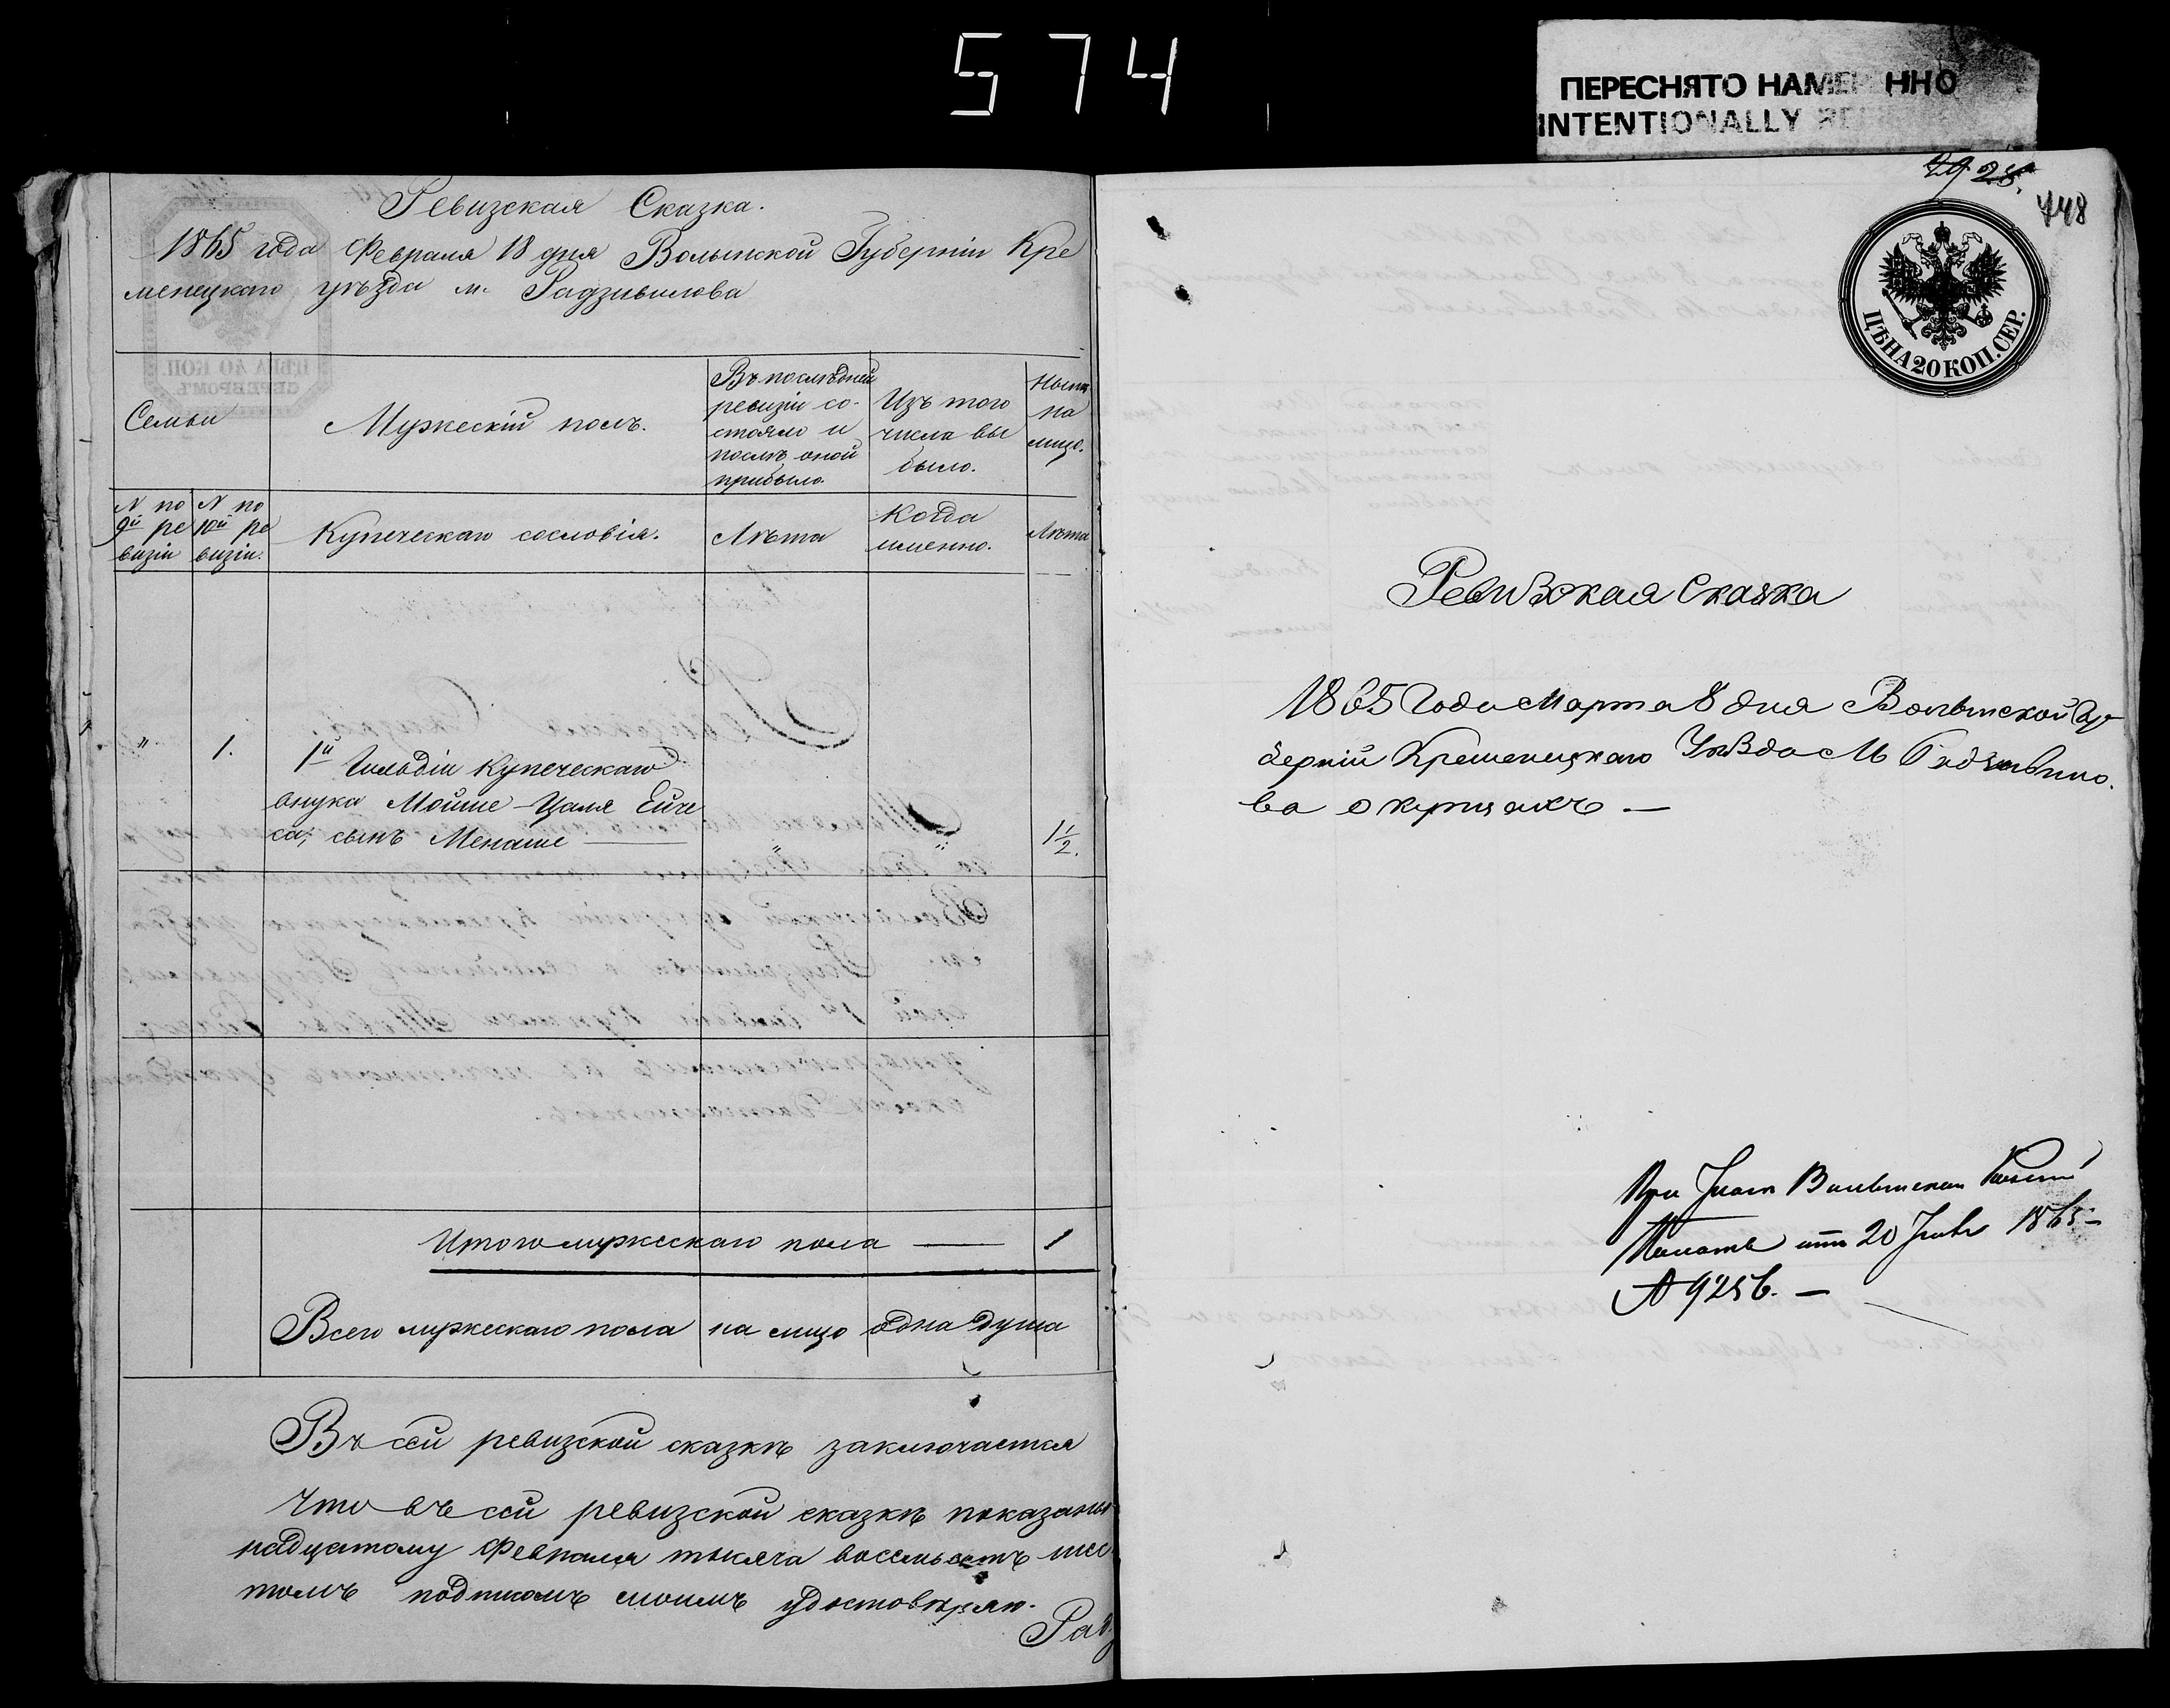 574
ПЕРЕСНЯТО НАМЕР ННО
INTENTIONALLY RE
Ревизская Сказка.
1865 года Февраля 18 дня Волынской Губерніи Кре
менецкаго уѣзда м. Радзивилова
Семьи
Мужескій полъ.
Въ послѣдней
ревизіи со-
стояло и
послѣ оной
прибыло.
Изъ того
числа вы
было.
Нынѣ
на
лицо.
N по
9й ре
визіи
N по
10й ре
визіи.
Купеческаго сословія.
Лѣта
Когда
именно.
Лѣта
" 1. 1й Гильдіи Купеческаго
внука Мойше-Цаля Ейче
са; сынъ Менаше — " " 1 1/2.
Итого мужескаго пола — 1
Всего мужескаго пола на лицо одна душа
Въ сей ревизской сказкѣ заключается
Что въ сей ревизской сказкѣ показаны
надцатому Февраля тысяча восемьсотъ шес
томъ подписомъ моимъ удостовѣряю.
Рав
29 28.
448
ЦѢНА 20 КОП. СЕР.
Ревизская Сказка
1865 Года Марта 8 дня Волынской Гу-
берніи Кременецкаго Уѣзда М Радзивило.
ва о купцахъ —
При Указѣ Волынской Казенной
Палаты отъ 20 1865
N 9256. —